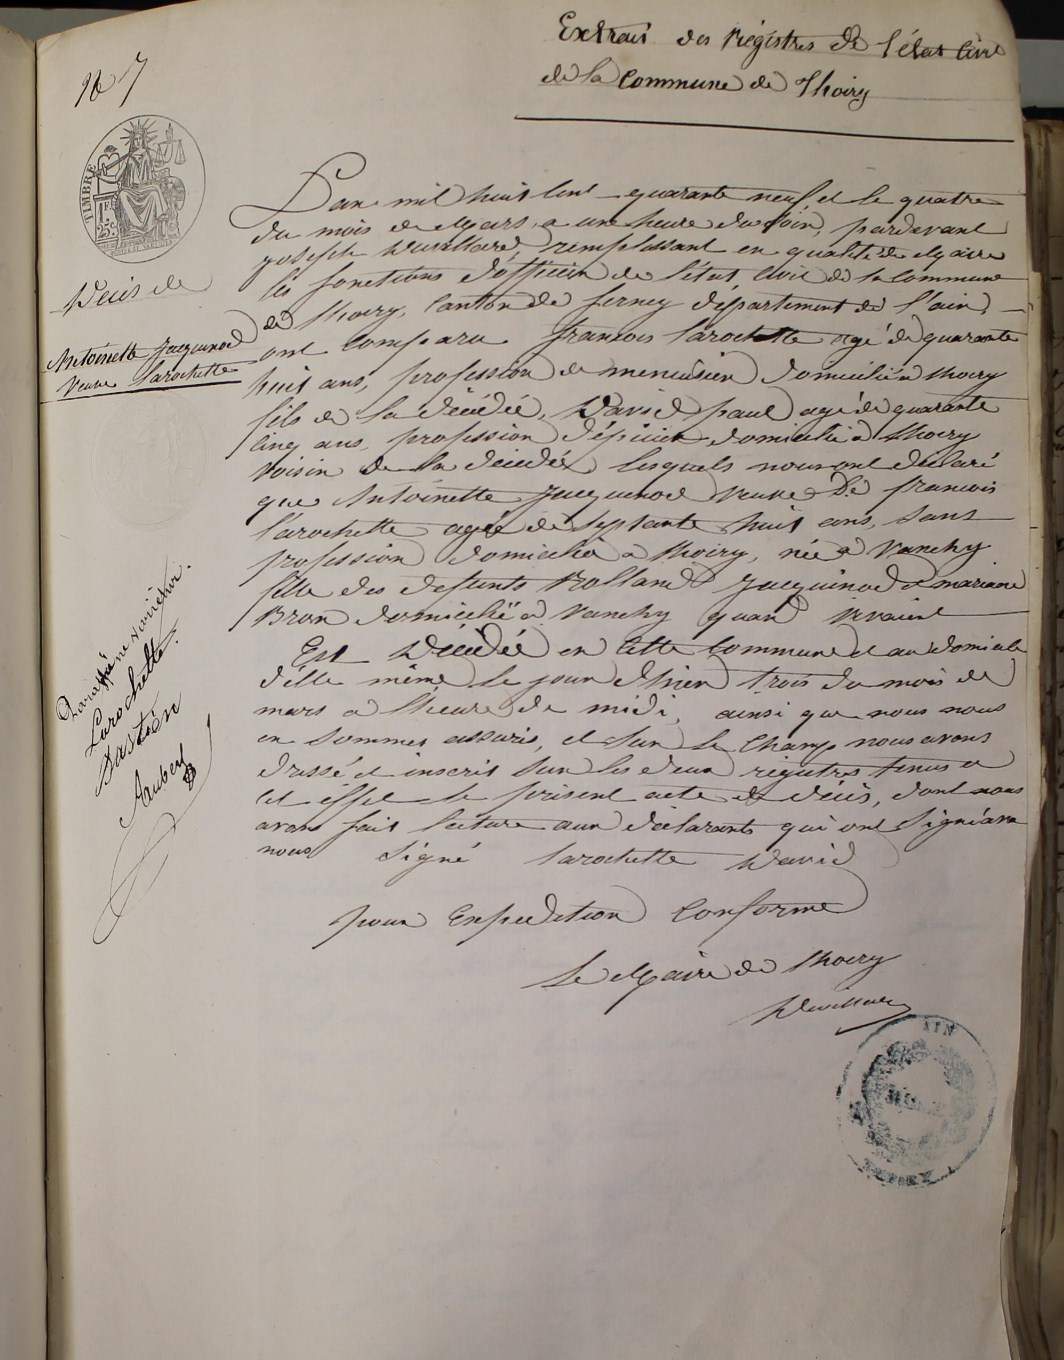 Extrait des Régistres de l'état Civil
de la Commune de Thoiry
N° 7
TIMBRE
1F
25c
Décès de
Antoinette Jacquinod
Veuve Larochette
L'an mil huit cent quarante neuf, et le quatre
du mois de Mars, a une heure du soir, pardevant
joseph Duvillard remplissant en qualité de Maire
les fonctions d'officier de l'état Civil de la Commune
de Thoiry, Canton de ferney département de l'ain,
ont comparu françois Larochette agé de quarante
huit ans, profession de menuisier domicilié a thoiry
fils de la décédée, David paul agé de quarante
cinq ans, profession d'épicier domicilié a thoiry
Voisin de la décédée lesquels nous ont déclaré
que Antoinette Jacquinod veuve De françois
Larochette agée de septante huit ans, sans
profession domicilié a thoiry, née a Vanchy
fille des defunts Rolland Jacquinod et mariane
Bron domicilié a Vanchy quand vivaint
Est Décédée en cette Commune et au domicile
d'elle même le jour d'hier trois du mois de
mars a l'heure de midi, ainsi que nous nous
en sommes assuris, et sur le Champ nous avons
dressé et inscrit sur les deux régistres tenus a
cet éffet le présent acte de décès, dont nous
avons fait lecture aux déclarants qui ont Signé avec
nous Signé Larochette David
pour Expédition Conforme
Le Maire de Thoiry
Duvillard
Larochette
Bastien
Aubert
AIN